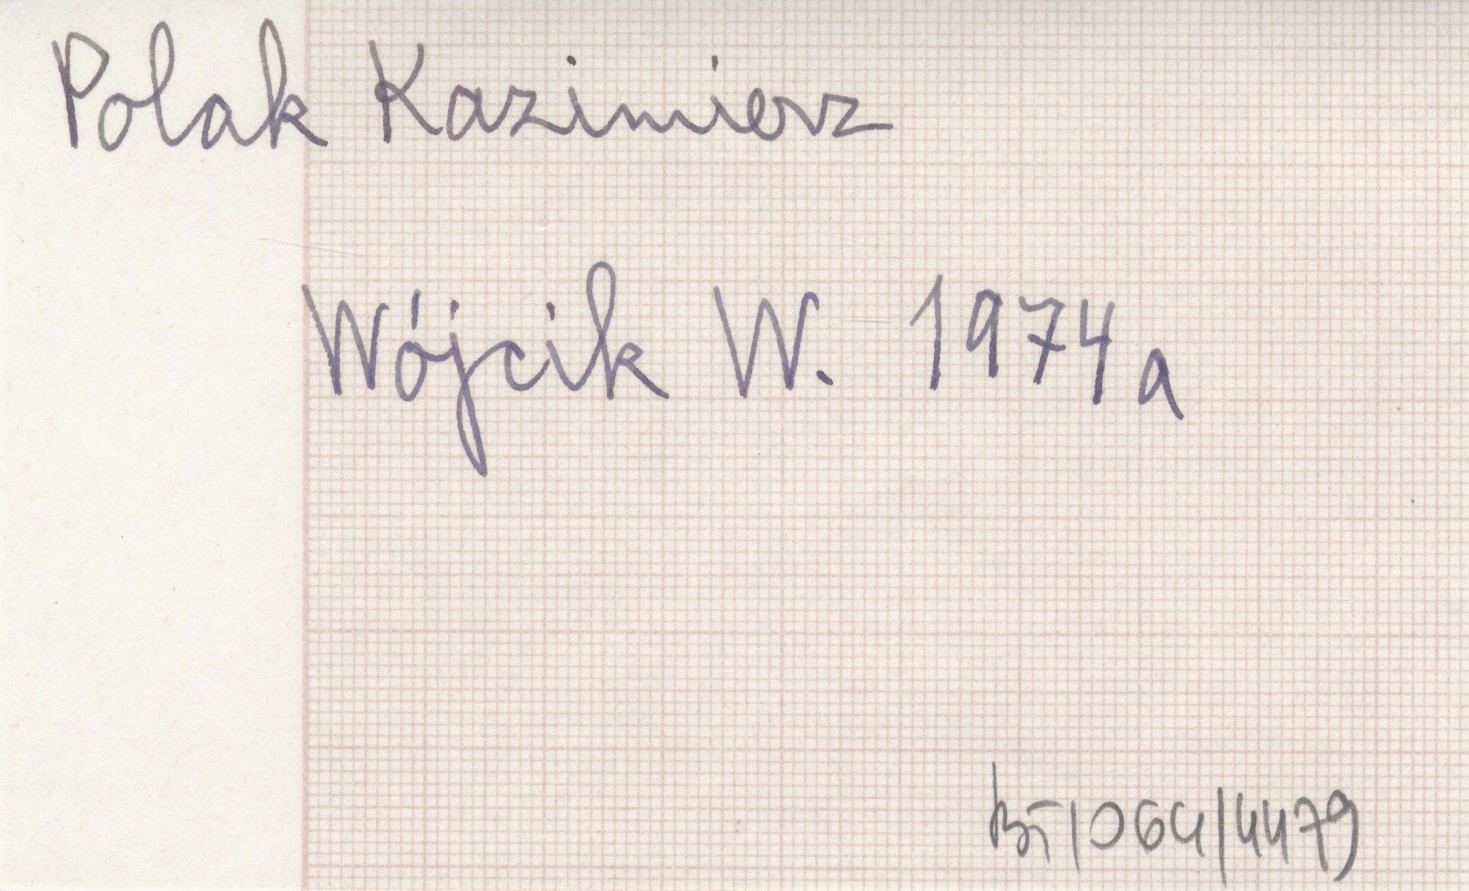 Polak Kazimierz
Wójcik W. 1974a
BT/064/4479